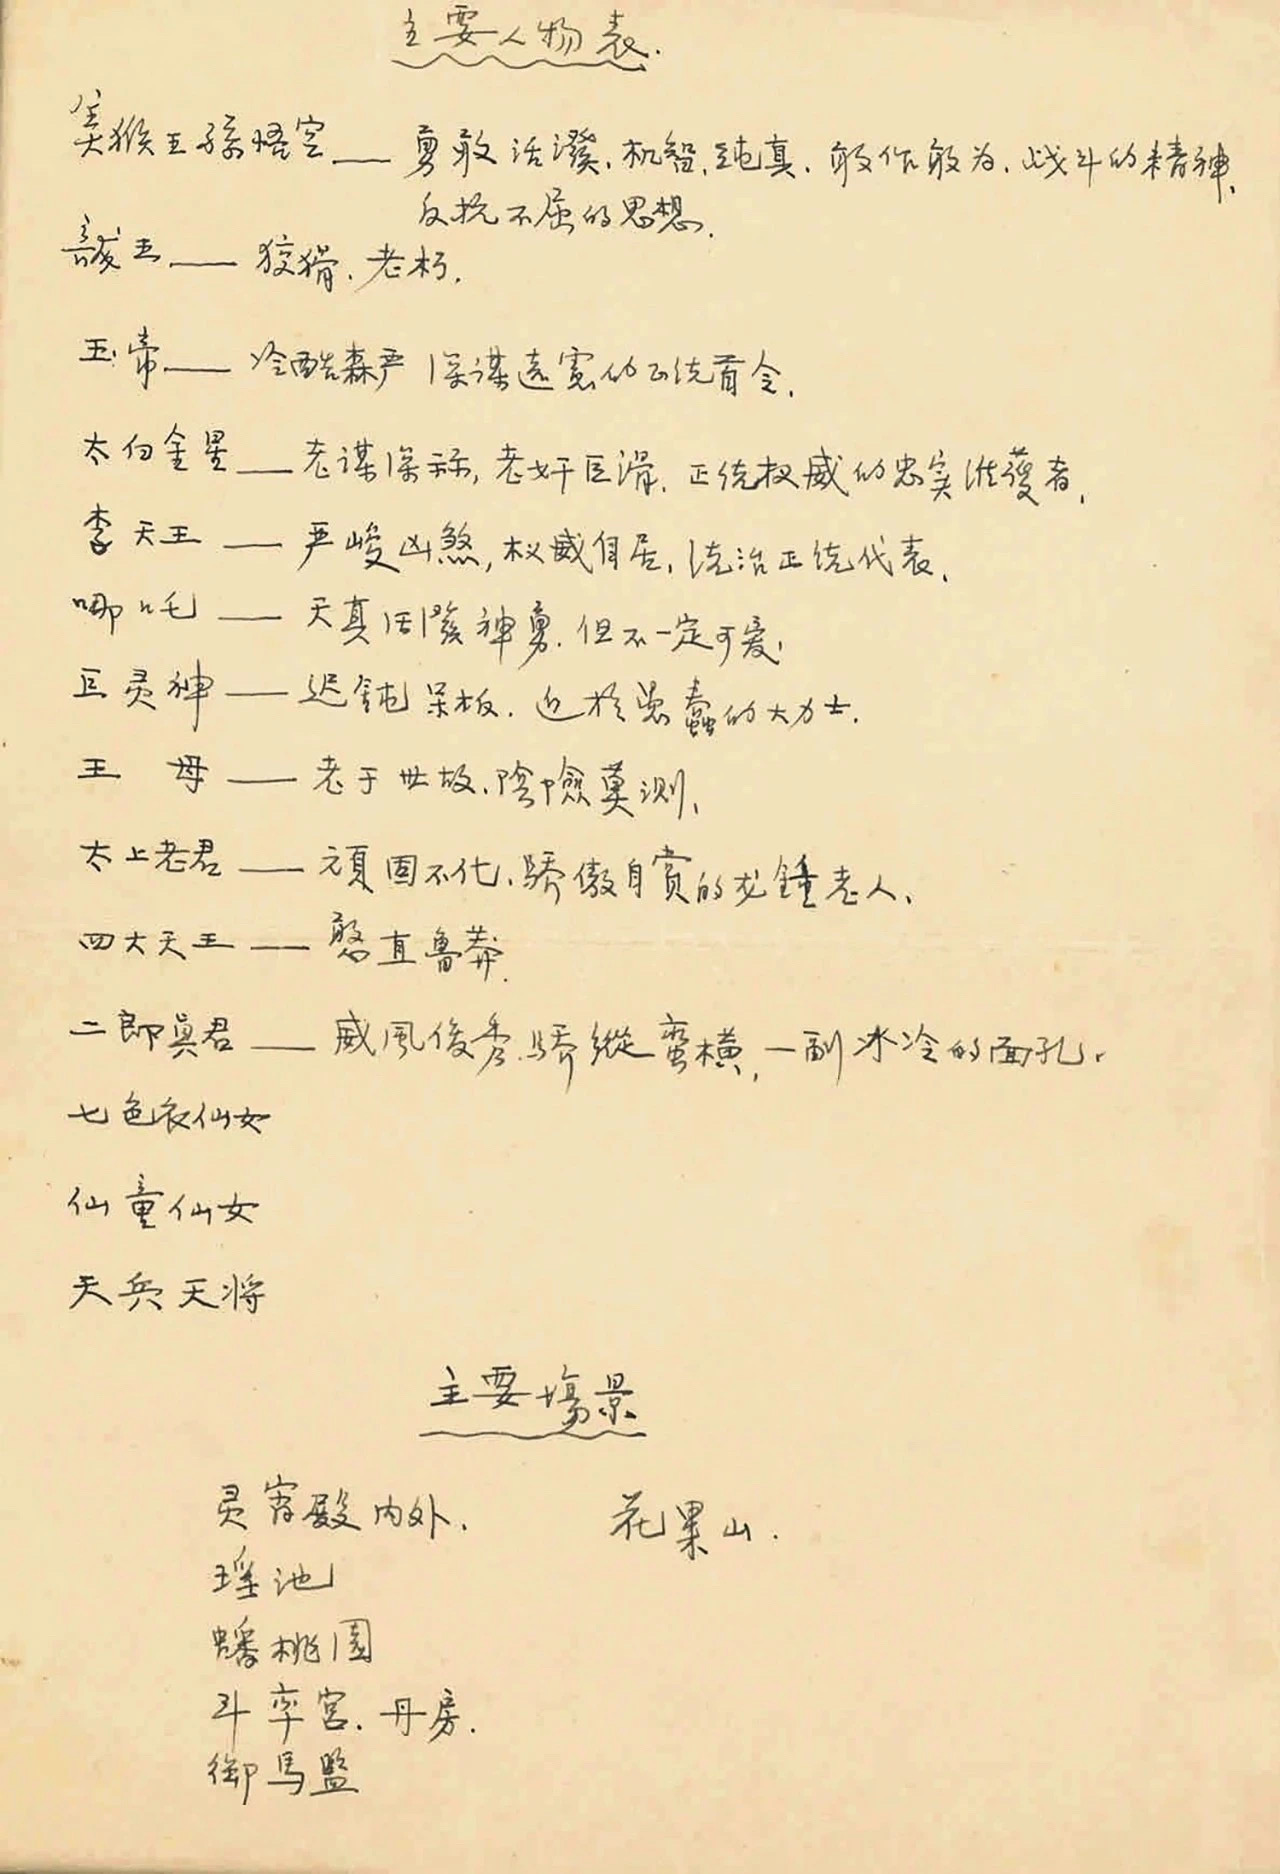 主要人物表.
美猴王孫悟空——勇敢活潑、机智、純真、敢作敢为、战斗的精神、
反抗不屈的思想.
龙王——狡猾、老朽.
玉帝——冷酷森严 深谋远慮的正统首令、
太白金星——老谋深祘,老奸巨滑、正统权威的忠实維護者、
李天王——严峻凶煞,权威自居,统治正统代表、
哪吒——天真活潑神勇、但不一定可爱、
巨灵神——迟鈍呆板、近於愚蠢的大力士.
王 母——老于世故、陰險莫测、
太上老君——頑固不化、驕傲自赏的龙鍾老人、
四大天王——憨直魯莽.
二郎真君——威風俊秀、驕縱蛮横,一副冰冷的面孔、
七色衣仙女
仙童仙女
天兵天将
主要場景
灵宵殿内外. 花果山.
瑶池
蟠桃園
斗率宮. 丹房.
御馬監